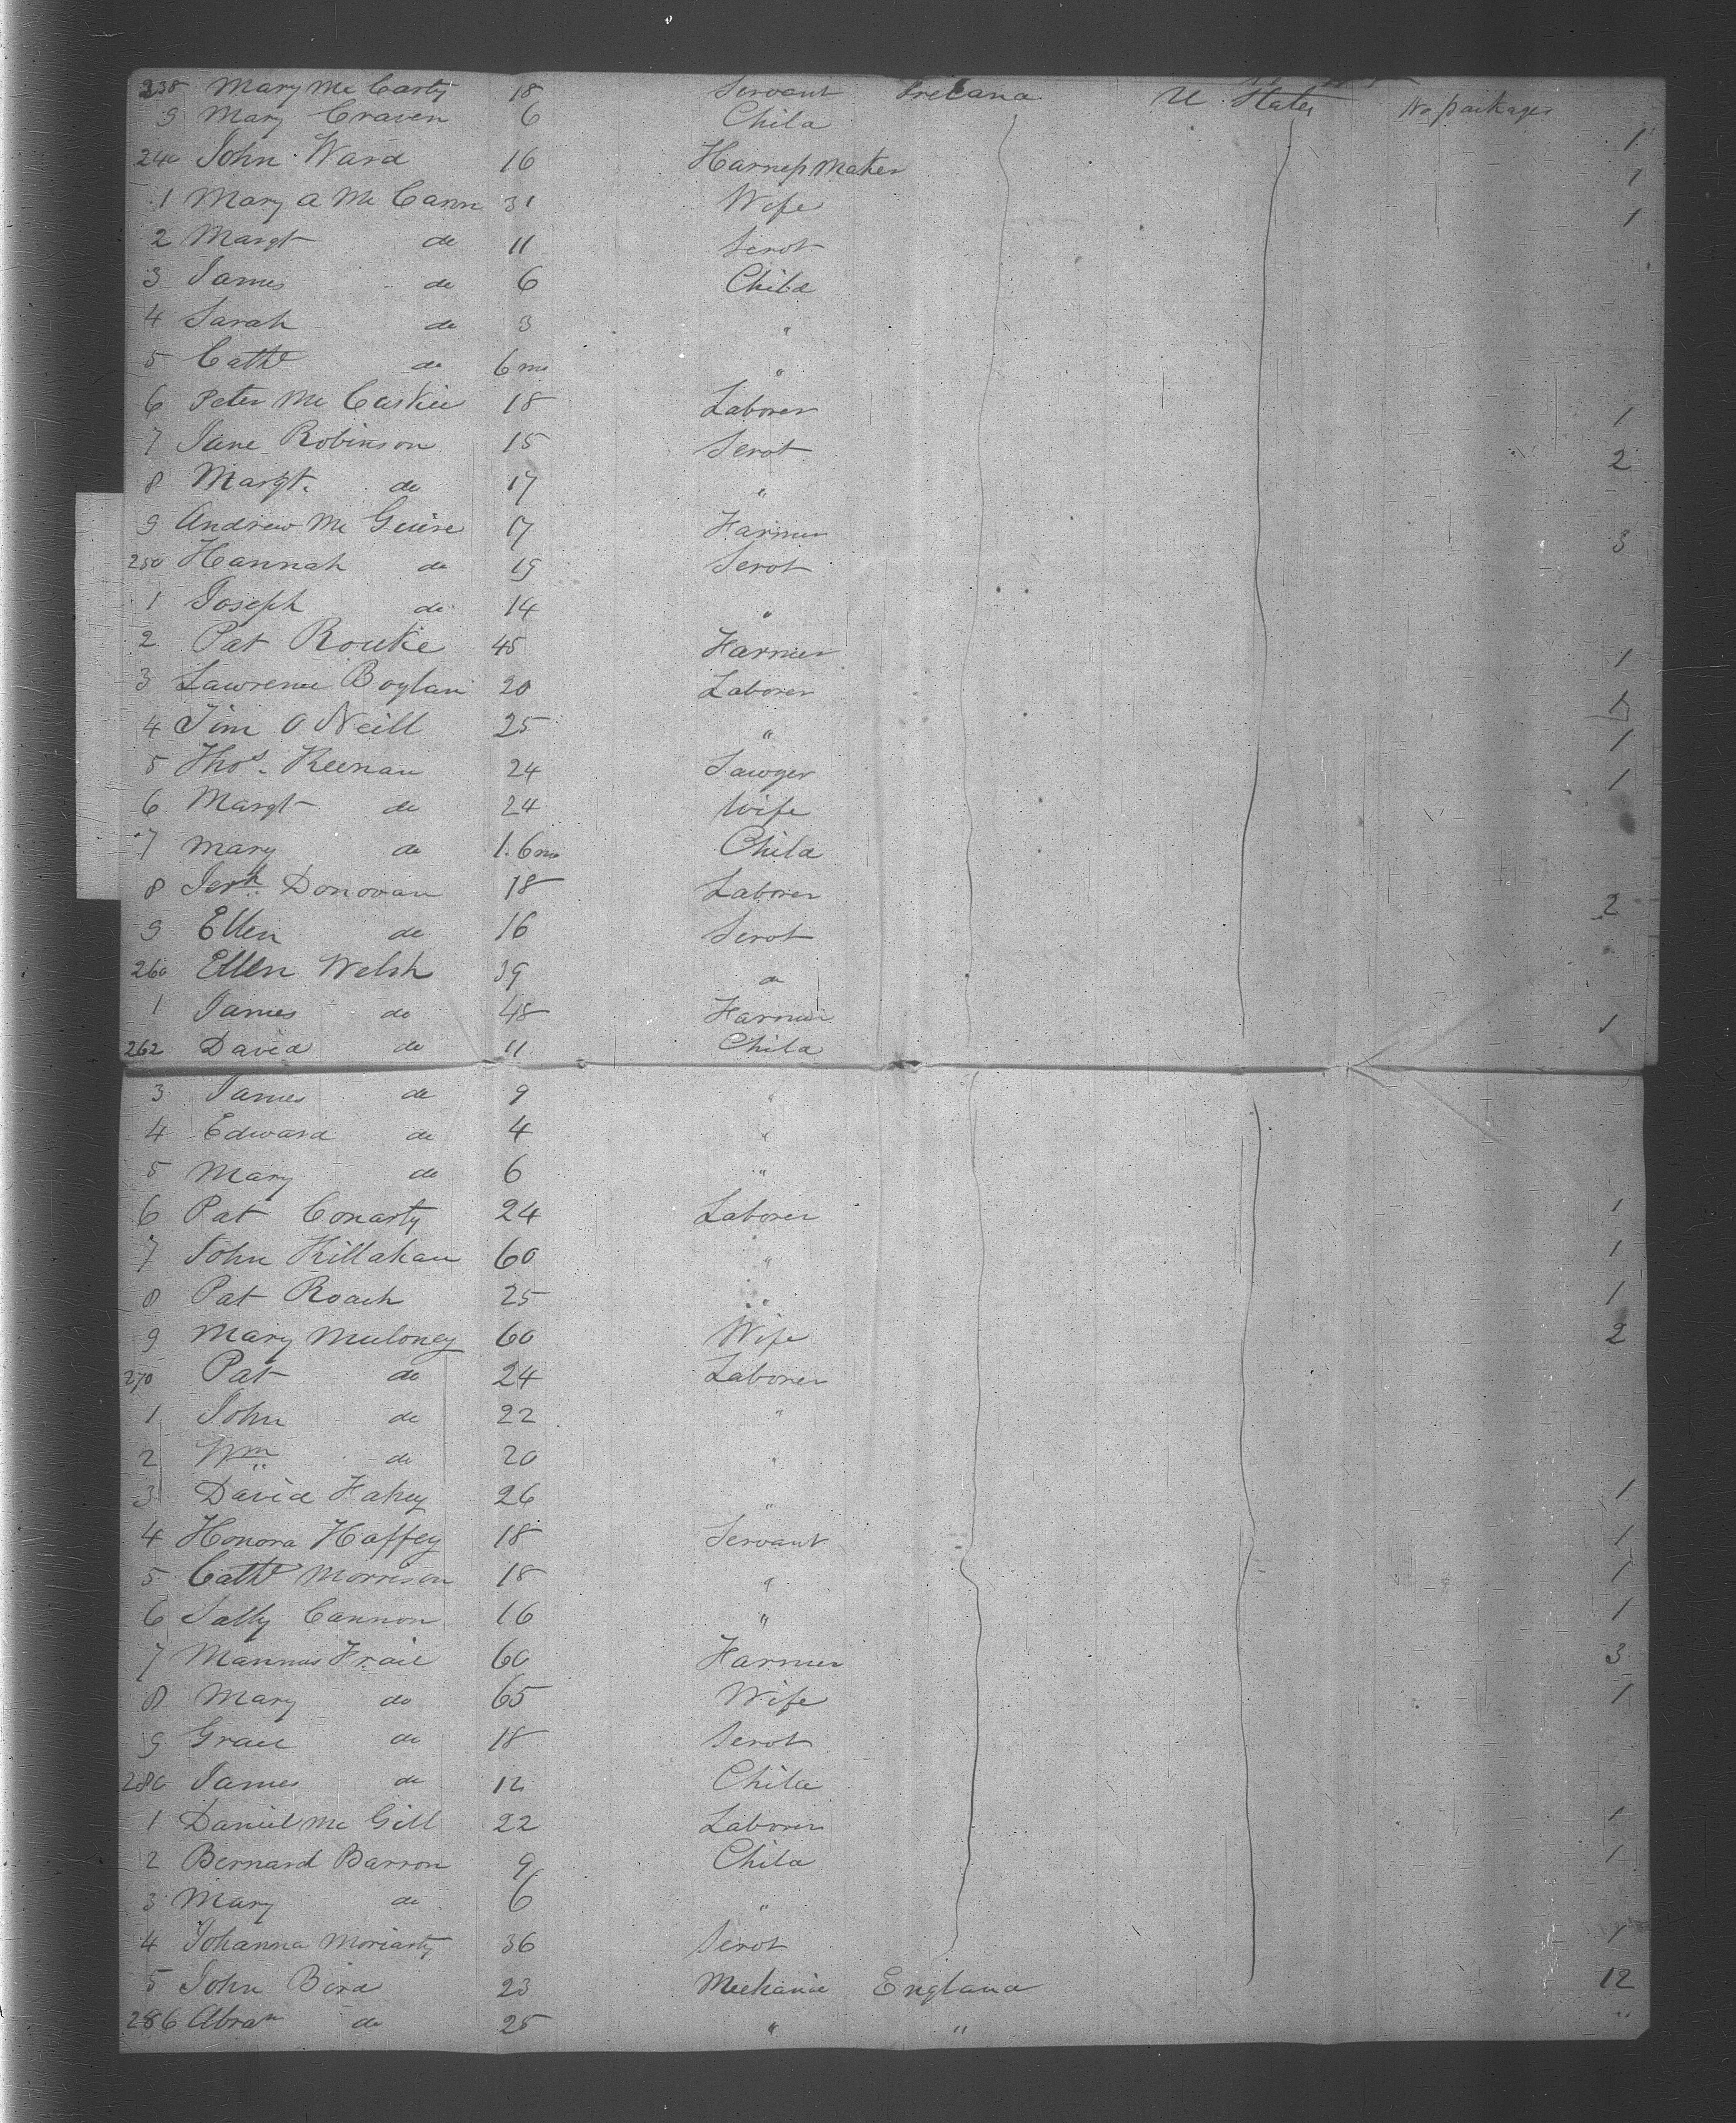 238 Mary Mc Carty 18 Servant Ireland U States No packages
9 Mary Craven 6 Child 1
240 John Ward 16 Harness Maker 1
1 Mary A Mc Cann 31 Wife 1
2 Margt do 11 Servt
3 James do 6 Child
4 Sarah do 3 "
5 Cathe do 6 mo "
6 Peter Mc Caskie 18 Laborer 1
7 Jane Robinson 15 Servt 2
8 Margt. do 17 "
9 Andrew Mc Guire 17 Farmer 3
250 Hannah do 19 Servt
1 Joseph do 14 "
2 Pat Rouke 45 Farmer 1
3 Lawrence Boylan 20 Laborer 1
4 Jim O Neill 25 " 1
5 Thos. Keenan 24 Sawyer 1
6 Margt do 24 Wife
7 Mary do 1.6 mo Child
8 Jerh Donovan 18 Laborer 2
9 Ellen do 16 Servt
260 Ellen Welsh 39 do
1 James do 48 Farmer 1
262 David do 11 Child
3 James do 9 "
4 Edward do 4 "
5 Mary do 6 "
6 Pat Conarty 24 Laborer 1
7 John Killahan 60 " 1
8 Pat Roach 25 " 1
9 Mary Muloney 60 Wife 2
270 Pat do 24 Laborer
1 John do 22 "
2 Wm do 20 "
3 David Fahey 26 " 1
4 Honora Haffey 18 Servant 1
5 Cathe Morrison 18 " 1
6 Sally Cannon 16 " 1
7 Mannus Frail 60 Farmer 3
8 Mary do 65 Wife 1
9 Grace do 18 Servt
280 James do 12 Child
1 Daniel Mc Gill 22 Laborer 1
2 Bernard Barron 9 Child 1
3 Mary do 6 "
4 Johanna Moriarty 36 Servt 1
5 John Bird 23 Mechanic England 12
286 Abram do 25 " " "